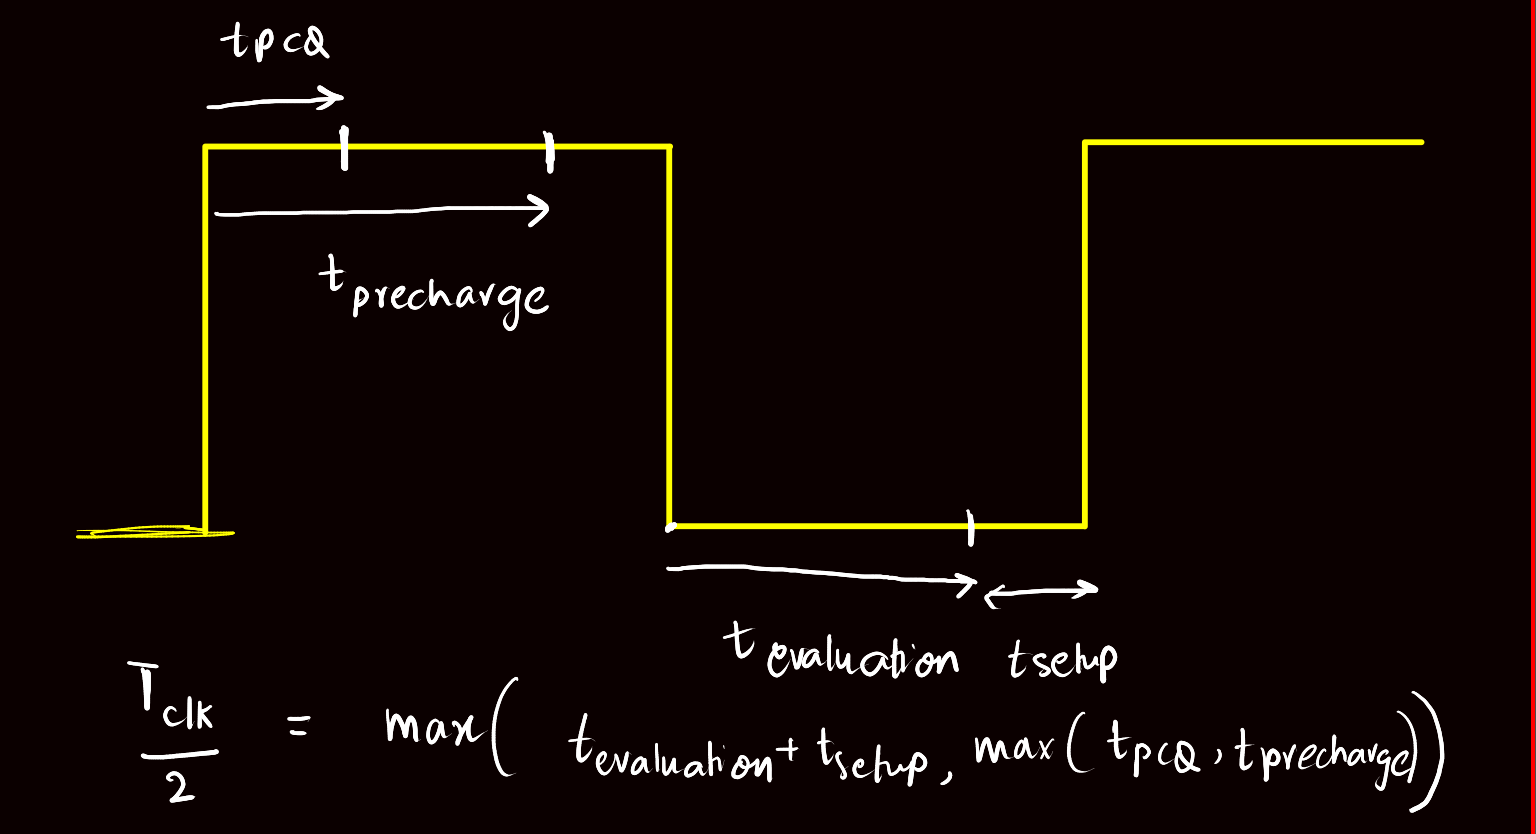 tpcQ
tprecharge
tevaluation tsetup
Tclk/2 = max( tevaluation + tsetup, max( tpcQ, tprecharge))